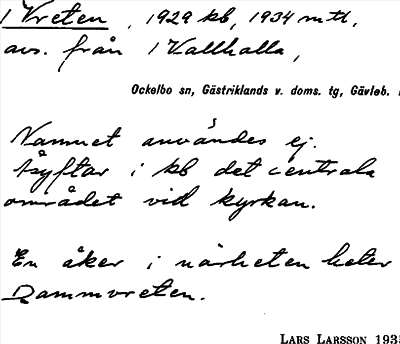 1 Vreten, 1929 kb, 1934 mtl,
avs. från 1 Vallhalla,
Ockelbo sn, Gästriklands v. doms. tg, Gävleb.
Namnet användes ej.
Åsyftar i kb det centrala
området vid kyrkan.
En åker i närheten heter
Dammvreten.
LARS LARSSON 1935